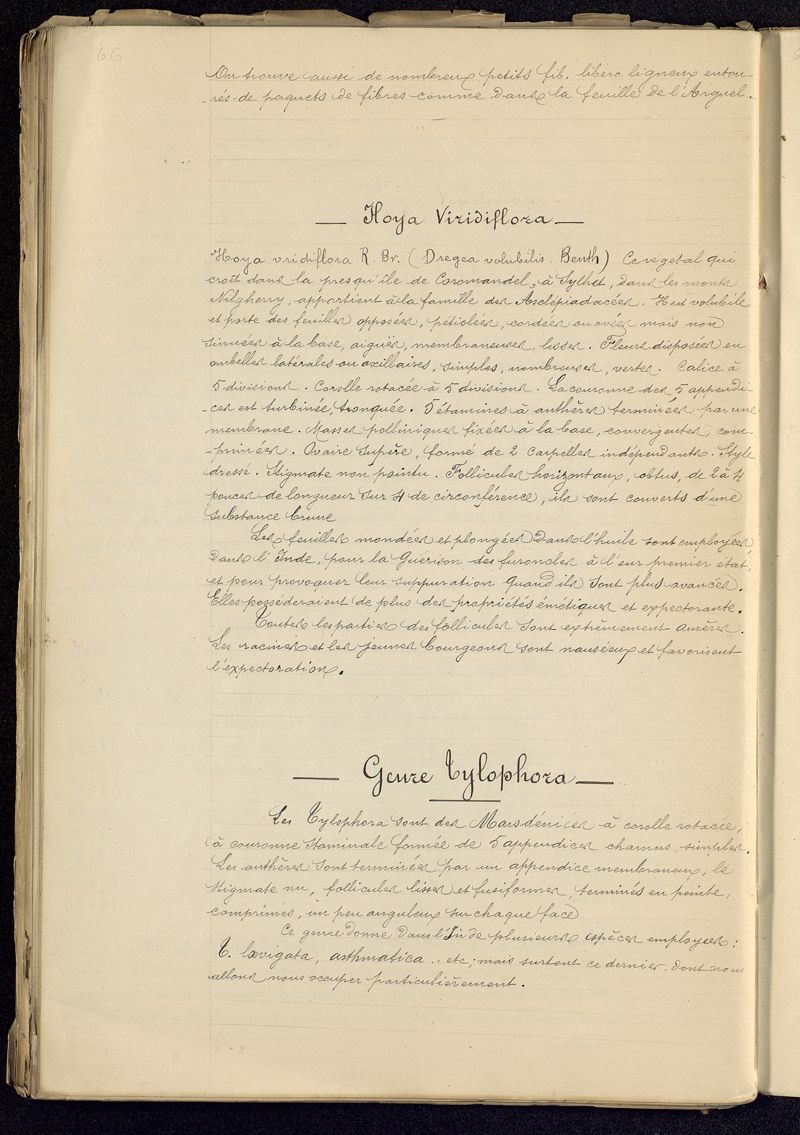 66
On trouve aussi de nombreux petits fib. libero ligneux entou-
-rés de paquets de fibres comme dans la feuille de l'Arguel.
— Hoya Viridiflora —
Hoya viridiflora R. Br. (Dregea volubilis. Benth) Ce végétal qui
croît dans la presqu'île de Coromandel, à Sylhet, dans les monts
Nilgherry, appartient à la famille des Asclépiadacées. Il est volubile
et porte des feuilles opposées, pétiolées, cordées ou ovées mais non
sinuées à la base, aiguës, membraneuses, lisses. Fleurs disposées en
ombelles latérales ou axillaires, simples, nombreuses, vertes. Calice à
5 divisions. Corolle rotacée à 5 divisions. La couronne des 5 appendi-
-ces est turbinée, tronquée. 5 étamines à anthères terminées par une
membrane. Masses polliniques fixées à la base, convergentes, com-
-primées. Ovaire supère, formé de 2 carpelles indépendants. Style
dressé. Stigmate non pointu. Follicules horizontaux, obtus, de 2 à 4
pouces de longueur sur 4 de circonférence, ils sont couverts d'une
substance brune
Les feuilles mondées et plongées dans l'huile sont employées
dans l'Inde, pour la Guérison des furoncles à l'eur premier état,
et pour provoquer leur suppuration quand ils sont plus avancés.
Elles posséderaient de plus des propriétés émétiques et expectorante.
Toutes les parties des follicules sont extrêmement amères.
Les racines et les jeunes bourgeons sont nauséeux et favorisent
l'expectoration.
— Genre Tylophora —
Les Tylophora sont des Marsdéniées à corolle rotacée,
à couronne staminale formée de 5 appendices charnus, simples.
Les anthères sont terminées par un appendice membraneux, le
stigmate nu, follicules lisses et fusiformes, terminés en pointe,
comprimés, un peu anguleux sur chaque face
Ce genre donne dans l'Inde plusieurs espèces employées:
T. lævigata, asthmatica .. etc; mais surtout ce dernier dont nous
allons nous occuper particulièrement.